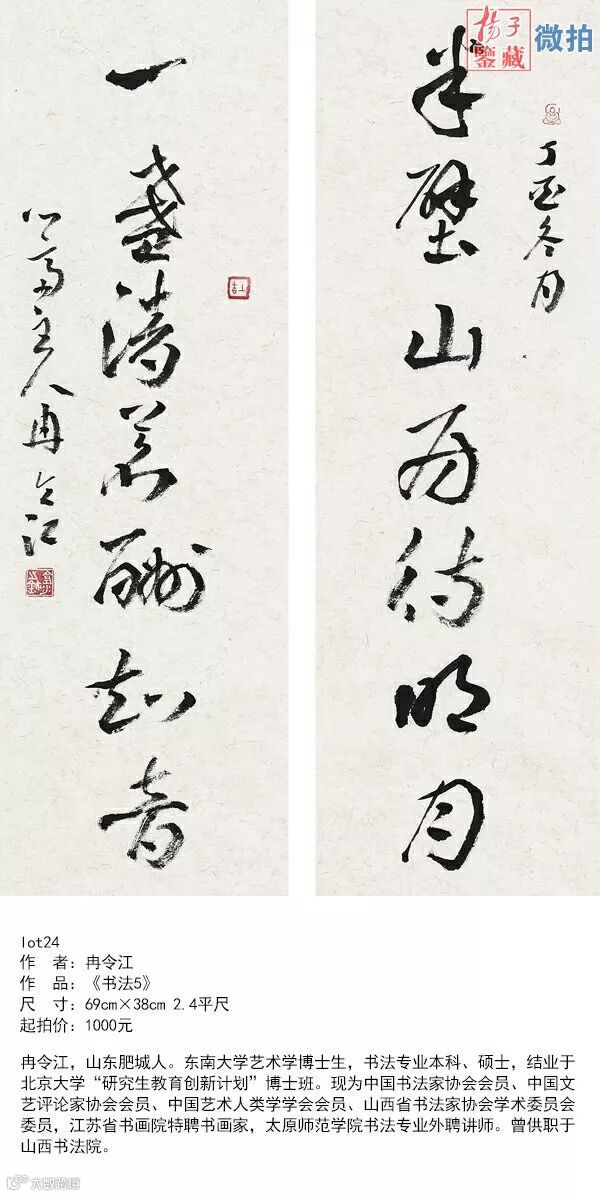 揚子
鑒藏
微拍
丁酉冬月
半壁山房待明月
一盞清茗酬知音
心斋主人冉令江
lot24
作　者：冉令江
作　品：《书法5》
尺　寸：69cm×38cm 2.4平尺
起拍价：1000元
冉令江，山东肥城人。东南大学艺术学博士生，书法专业本科、硕士，结业于
北京大学“研究生教育创新计划”博士班。现为中国书法家协会会员、中国文
艺评论家协会会员、中国艺术人类学学会会员、山西省书法家协会学术委员会
委员，江苏省书画院特聘书画家，太原师范学院书法专业外聘讲师。曾供职于
山西书法院。
大数跨境